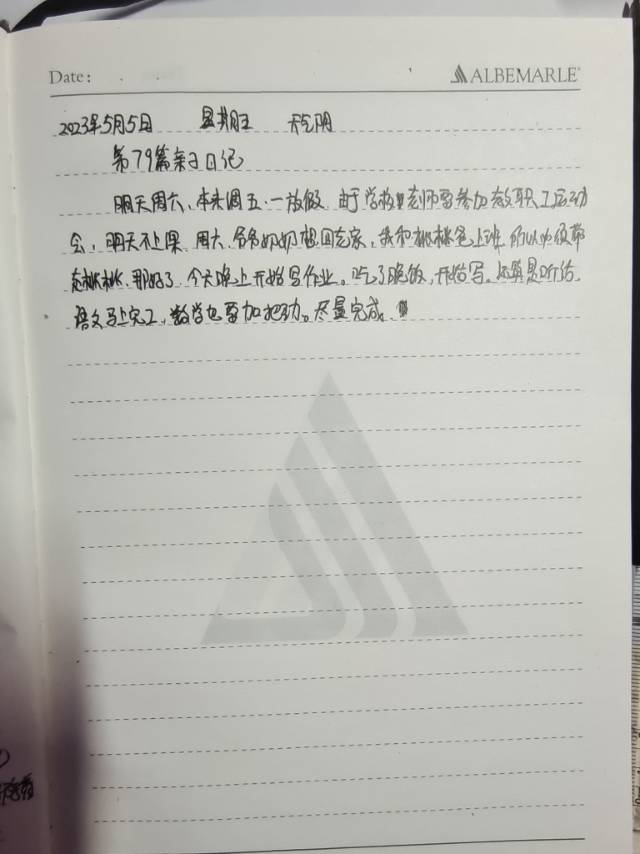 Date:
ALBEMARLE
2023年5月5日 星期五 天气阴
第79篇亲子日记
明天周六、本来周五一放假 由于学校老师要参加教职工运动
会，明天不上课 周六、爷爷奶奶想回老家，我和桃桃爸上班 所以必须带
走桃桃、那好了 今天晚上开始写作业。吃了晚饭，开始写。还算是听话，
语文马上完工，数学也要加把劲。尽量完成。